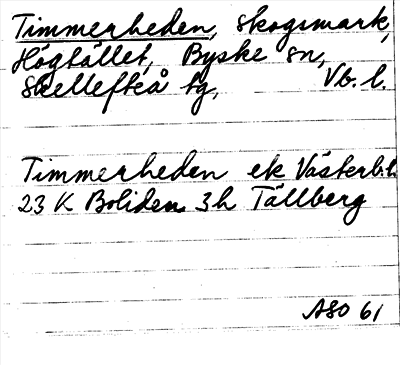 Timmerheden, skogsmark,
Högtället, Byske sn,
Skellefteå tg, Vb. l.
Timmerheden ek Västerb.l.
23 K Boliden 3h Tällberg
ASO 61